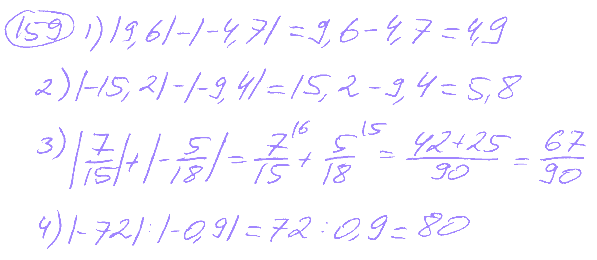 159 1) |9,6|-|-4,7|=9,6-4,7=4,9
2) |-15,2|-|-9,4|=15,2-9,4=5,8
3) |7/15|+|-5/18|=7/15^|6+5/18^|5=42+25/90=67/90
4) |-72|:|-0,9|=72:0,9=80